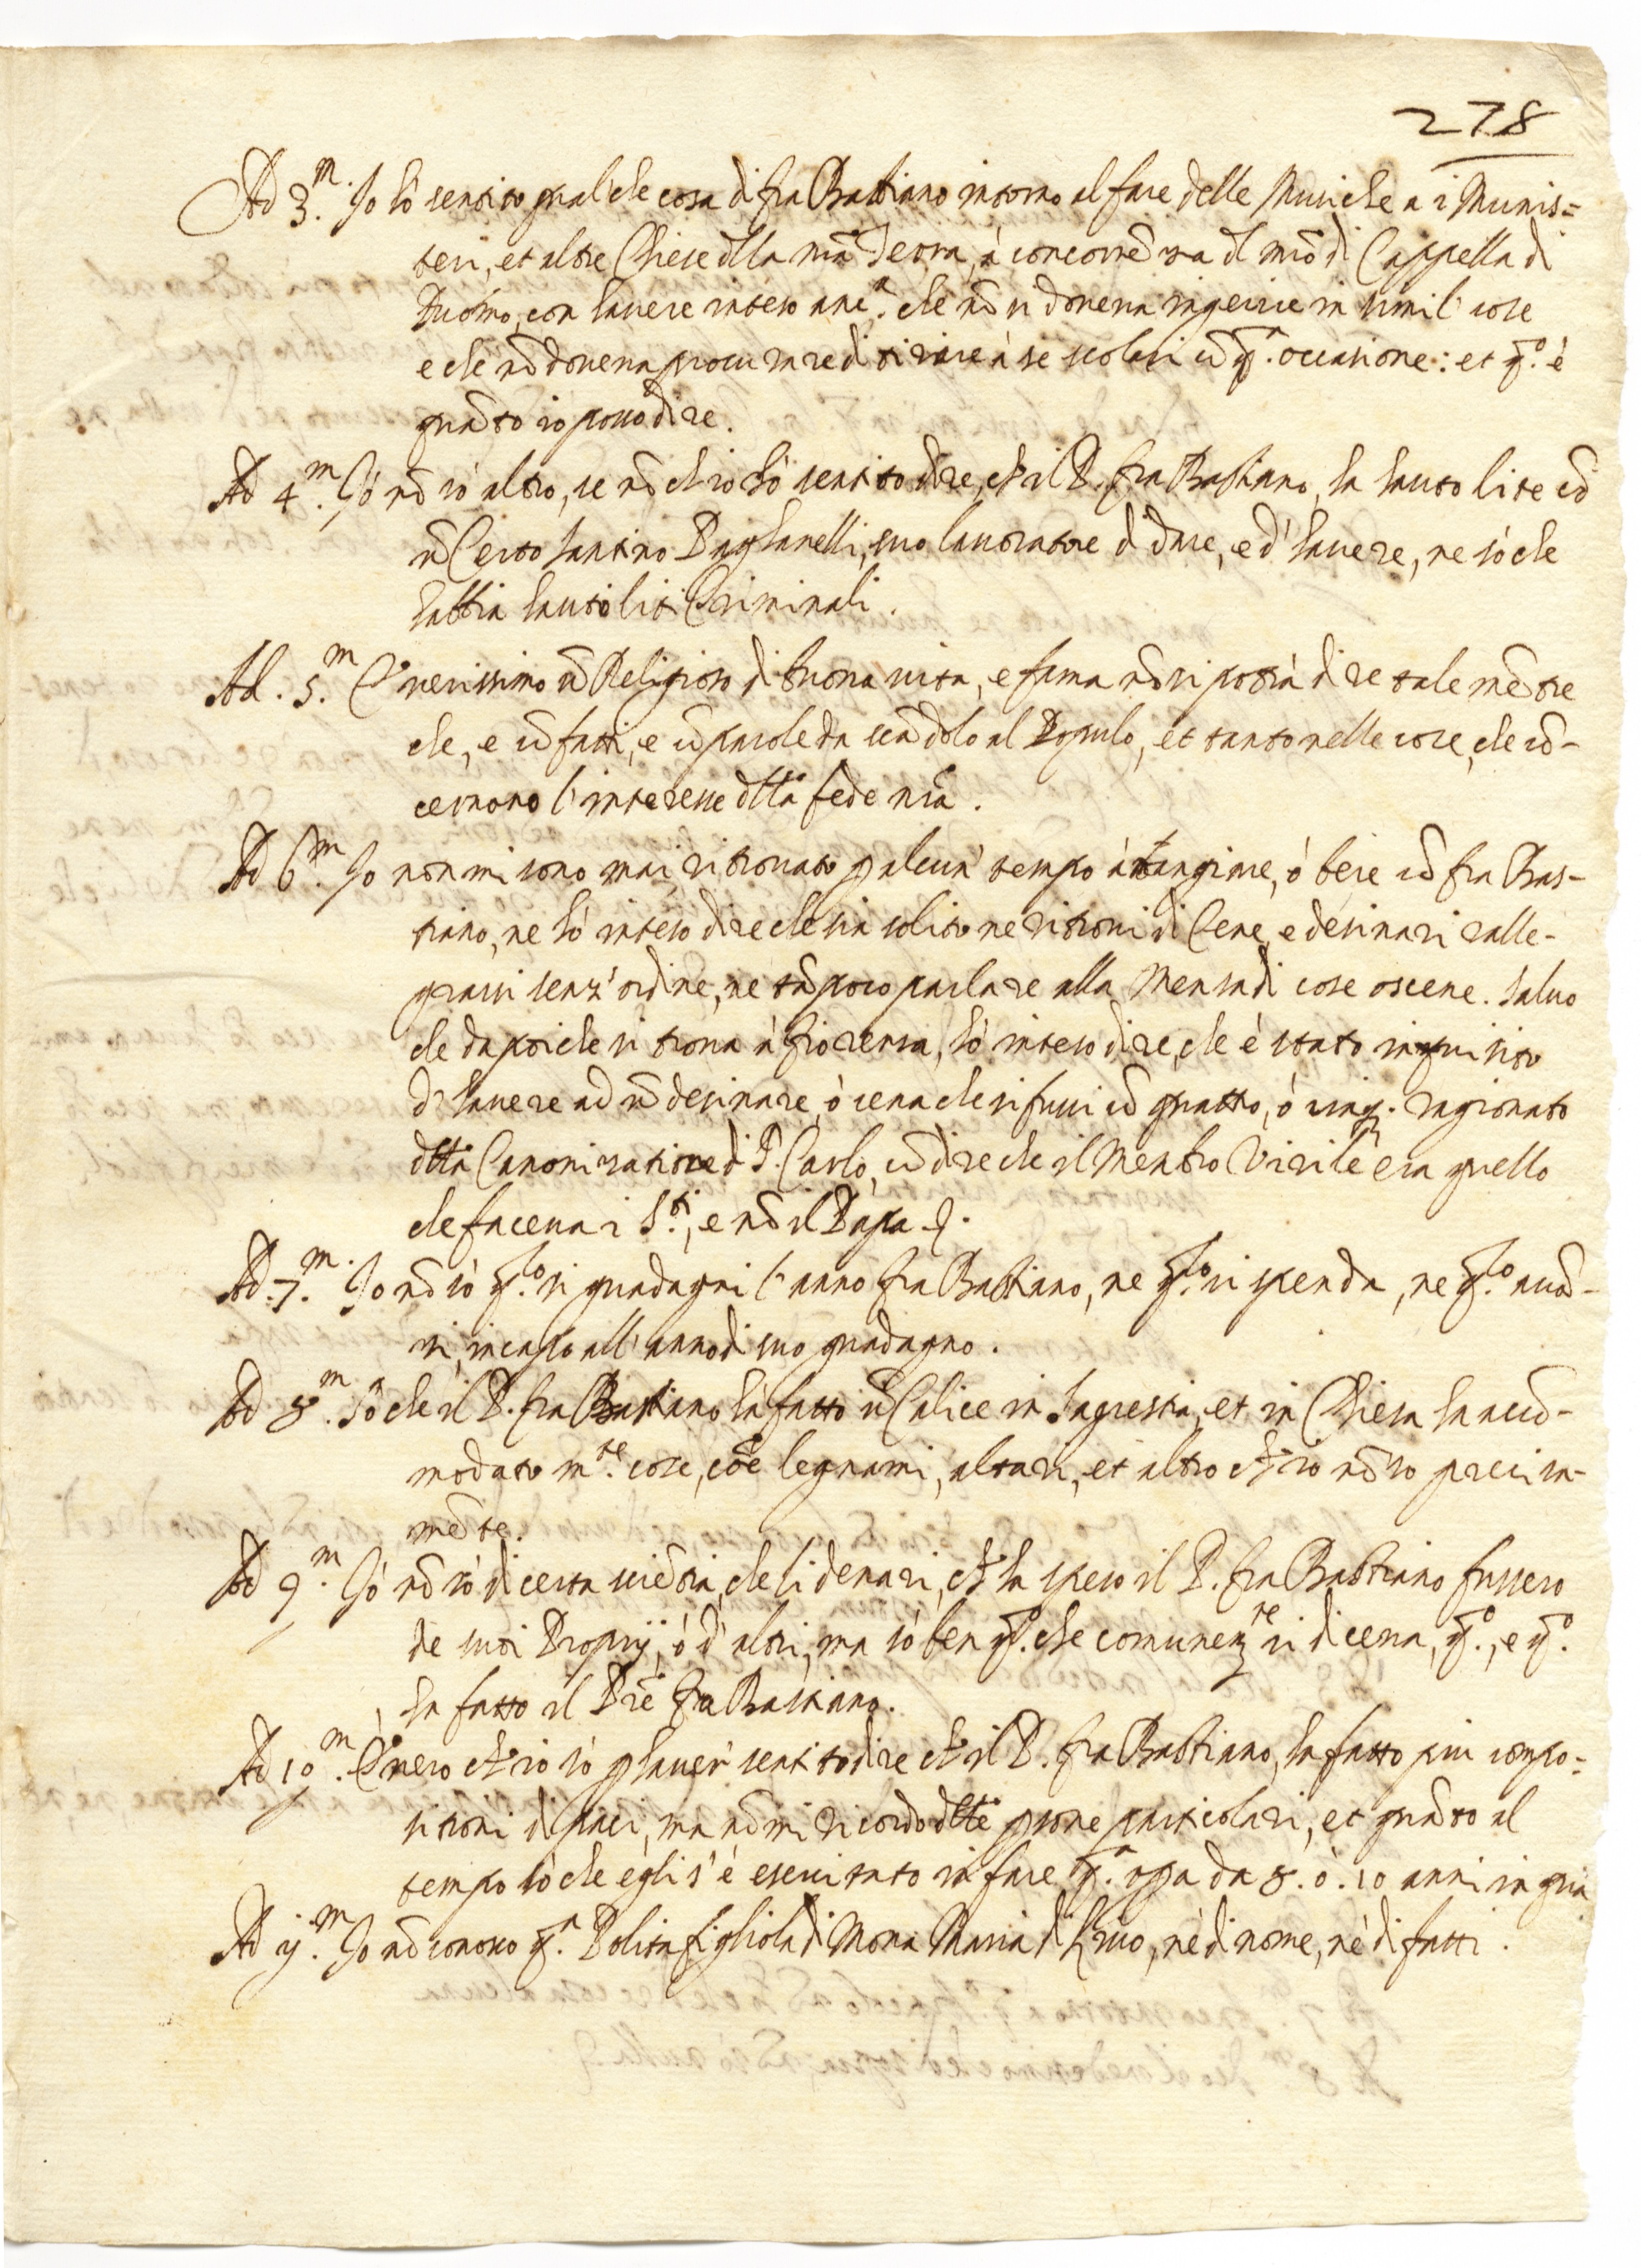 278
Ad 3.m Io hò sentito qual che cosa di fra Bastiano intorno al fare delle Musiche a i Munis=
teri, et altre Chiese dlla nrã Terra, à concorrẽza dl mrõ di Cappella di
Duomo, con havere inteso anc.a che nõ si doveva ingerire in simil' cose
e che nõ doveva procurare di tirare à se scolari cõ q.a occasione: et q.o è
quãto io posso dire.
Ad 4.m Io nõ sò altro, se nõ ch'io hò sentito dire, ch'il P. fra Bastiano, ha hauto lite cõ
ũ Certo Santino Paghanelli, suo lavoratore di dare, e d'havere, ne sò che
habbia hauto liti Criminali.
Ad. 5.m È verissimo ũ Religioso di buona vita, e fama nõ si potrà dire tale mẽtre
che, e cõ fatti, e cõ parole da scãdolo al Populo, et tanto nelle cose, che cõ-
cernono l'interesse dlla fede nrã.
Ad 6.m Io non mi sono mai ritrovato p alcun' tempo à mangiare, ò bere cõ fra Bas-
tiano, ne hò inteso dire che sia solito ne ritrovi di Cene, e desinari ralle-
grarsi senz'ordine, ne tãpoco parlare alla Mensa di cose oscene. Salvo
che da poi che si trova à fiorenza, hò inteso dire, che è stato inquisito
d'havere ad ũ desinare, ò cena che si fussi cõ quattro, ò cinq. ragionato
dlla Canonizatione di S. Carlo, cõ dire che il Membro Virile era quello
che faceva i S.ti, e nõ il Papa.
Ad. 7.m Io nõ sò q.to si guadagni l'anno fra Bastiano, ne q.to si spenda, ne q.to avã-
zi, in capo all'anno di suo guadagno.
Ad 8.m Sò che il P. fra Bastiano hà fatto ũ Calice in Sagrestia, et in Chiesa ha acco-
modato m.te cose, coẽ legnami, altari, et altro ch'io nõ so precisa-
mẽte.
Ad 9.m Io nõ sò di certa sciẽtia, che li denari, ch'ha speso il P. fra Bastiano fussero
de suoi Proprij, ò d'altri, ma sò ben q.o che comunem.te si diceva, q.o, e q.o
ha fatto il Prẽ fra Bastiano.
Ad 10.m È vero ch'io sò p haver' sentito dire ch'il P. fra Bastiano, ha fatto piu compo=
sitioni di paci, ma nõ mi ricordo dlle psone particolari, et quãto al
tempo sò che egli s'è esercitato in fare q.a opa da 8. ò. 10 anni in qua
Ad ij.m Io nõ conosco q.a Polita figliola di Mona Maria di Livo, nè di nome, nè di fatti.